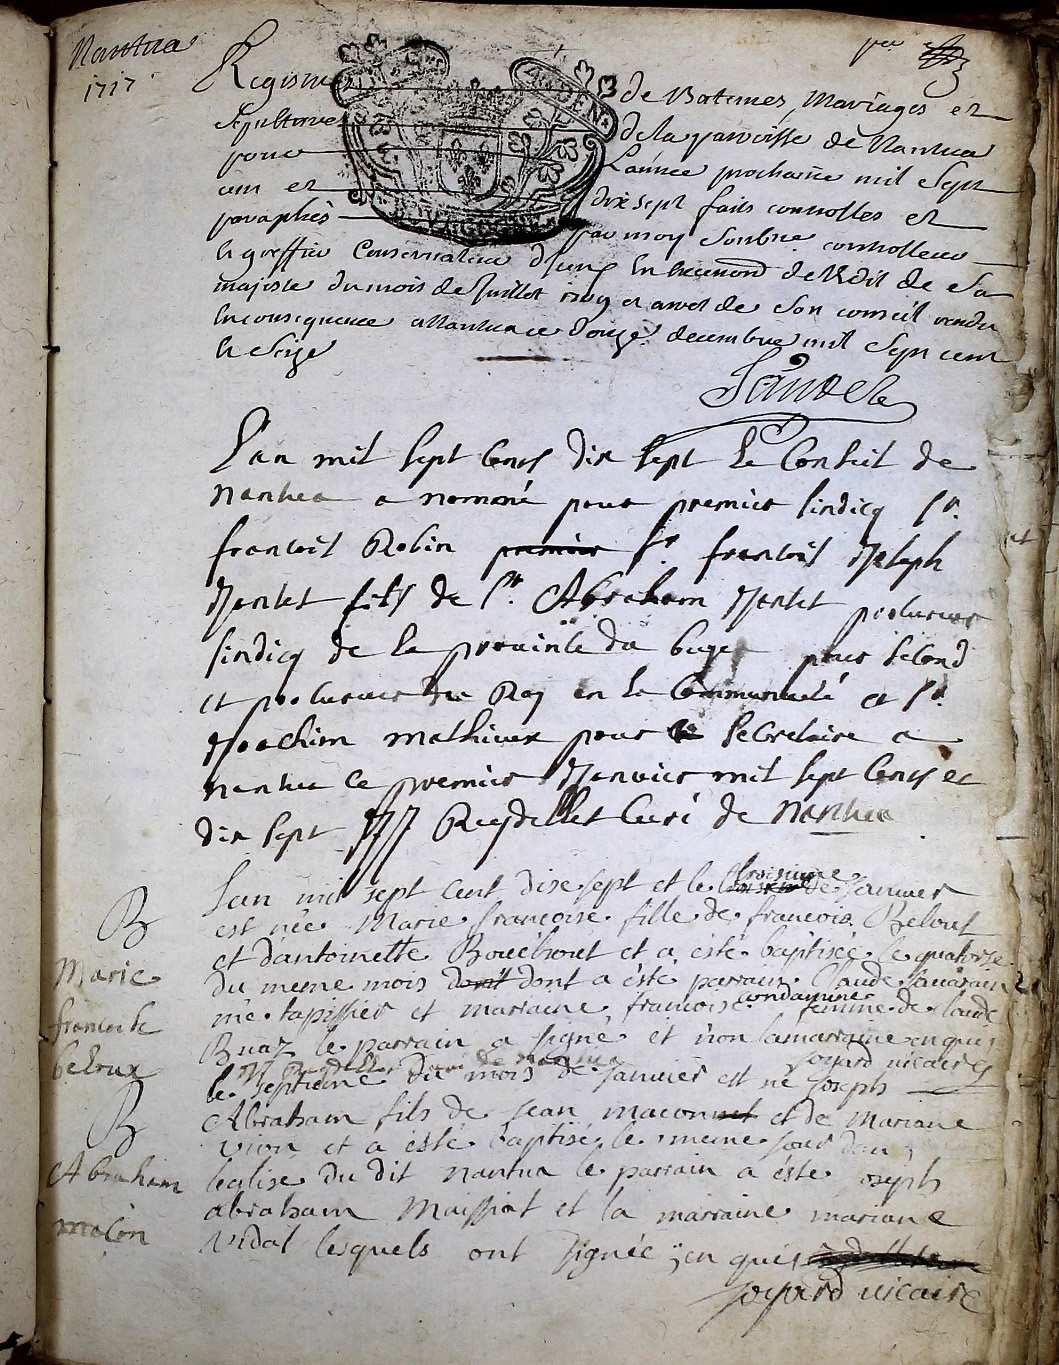 Nantua
1717
pre
Registre de Batemes, Mariages et
Sepultures de la parroisse de Nantua
pour L'année prochaine mil Sept
cen et dix sept faits controlles et
paraphés par moy controlleur
le greffier Conservateur d'iceux de L'Edit de Sa
majeste du mois de Juillet 1709 et arret de Son conseil rendu
En consequence a Nantua ce douze decembre mil Sept cent
le Seize
L'an mil sept cens dix sept le Conseil de
nantua a nommé pour premier sindicq sr.
francois Robin premier sr francois Joseph
Jantet fils de sr. Abraham Jantet procureur
sindicq de la province du bugey pour second
et procureur du Roy en la Communauté et sr.
Joachim mathieux pour le secretaire a
nantua ce premier Janvier mil sept cens et
dix sept JJ Reydellet Curé de Nantua
B
Marie
francoise
beloux
Lan mil sept cent dixe sept et le troisieme de Janvier
est née Marie francoise fille de francois Belout
et dantoinette Bouchout et a esté baptisée le quatorse
du meme mois dont dont a éste parrain Claude
me. tapissier et marraine francoise condamine femme de Claude
Buaz le parrain a signé et non la marraine enquis
JJ Reydellet curé de nantua Joyard vicaire
B
Abraham
macon
le septieme du mois de Janvier est né Joseph
Abraham fils de Jean maconnet et de Mariane
Vion et a este baptisé le meme Jour dans
leglise du dit nantua le parrain a este Joseph
abraham Maissiat et la marraine mariane
Vidal lesquels ont signée enquis
Joyard vicaire